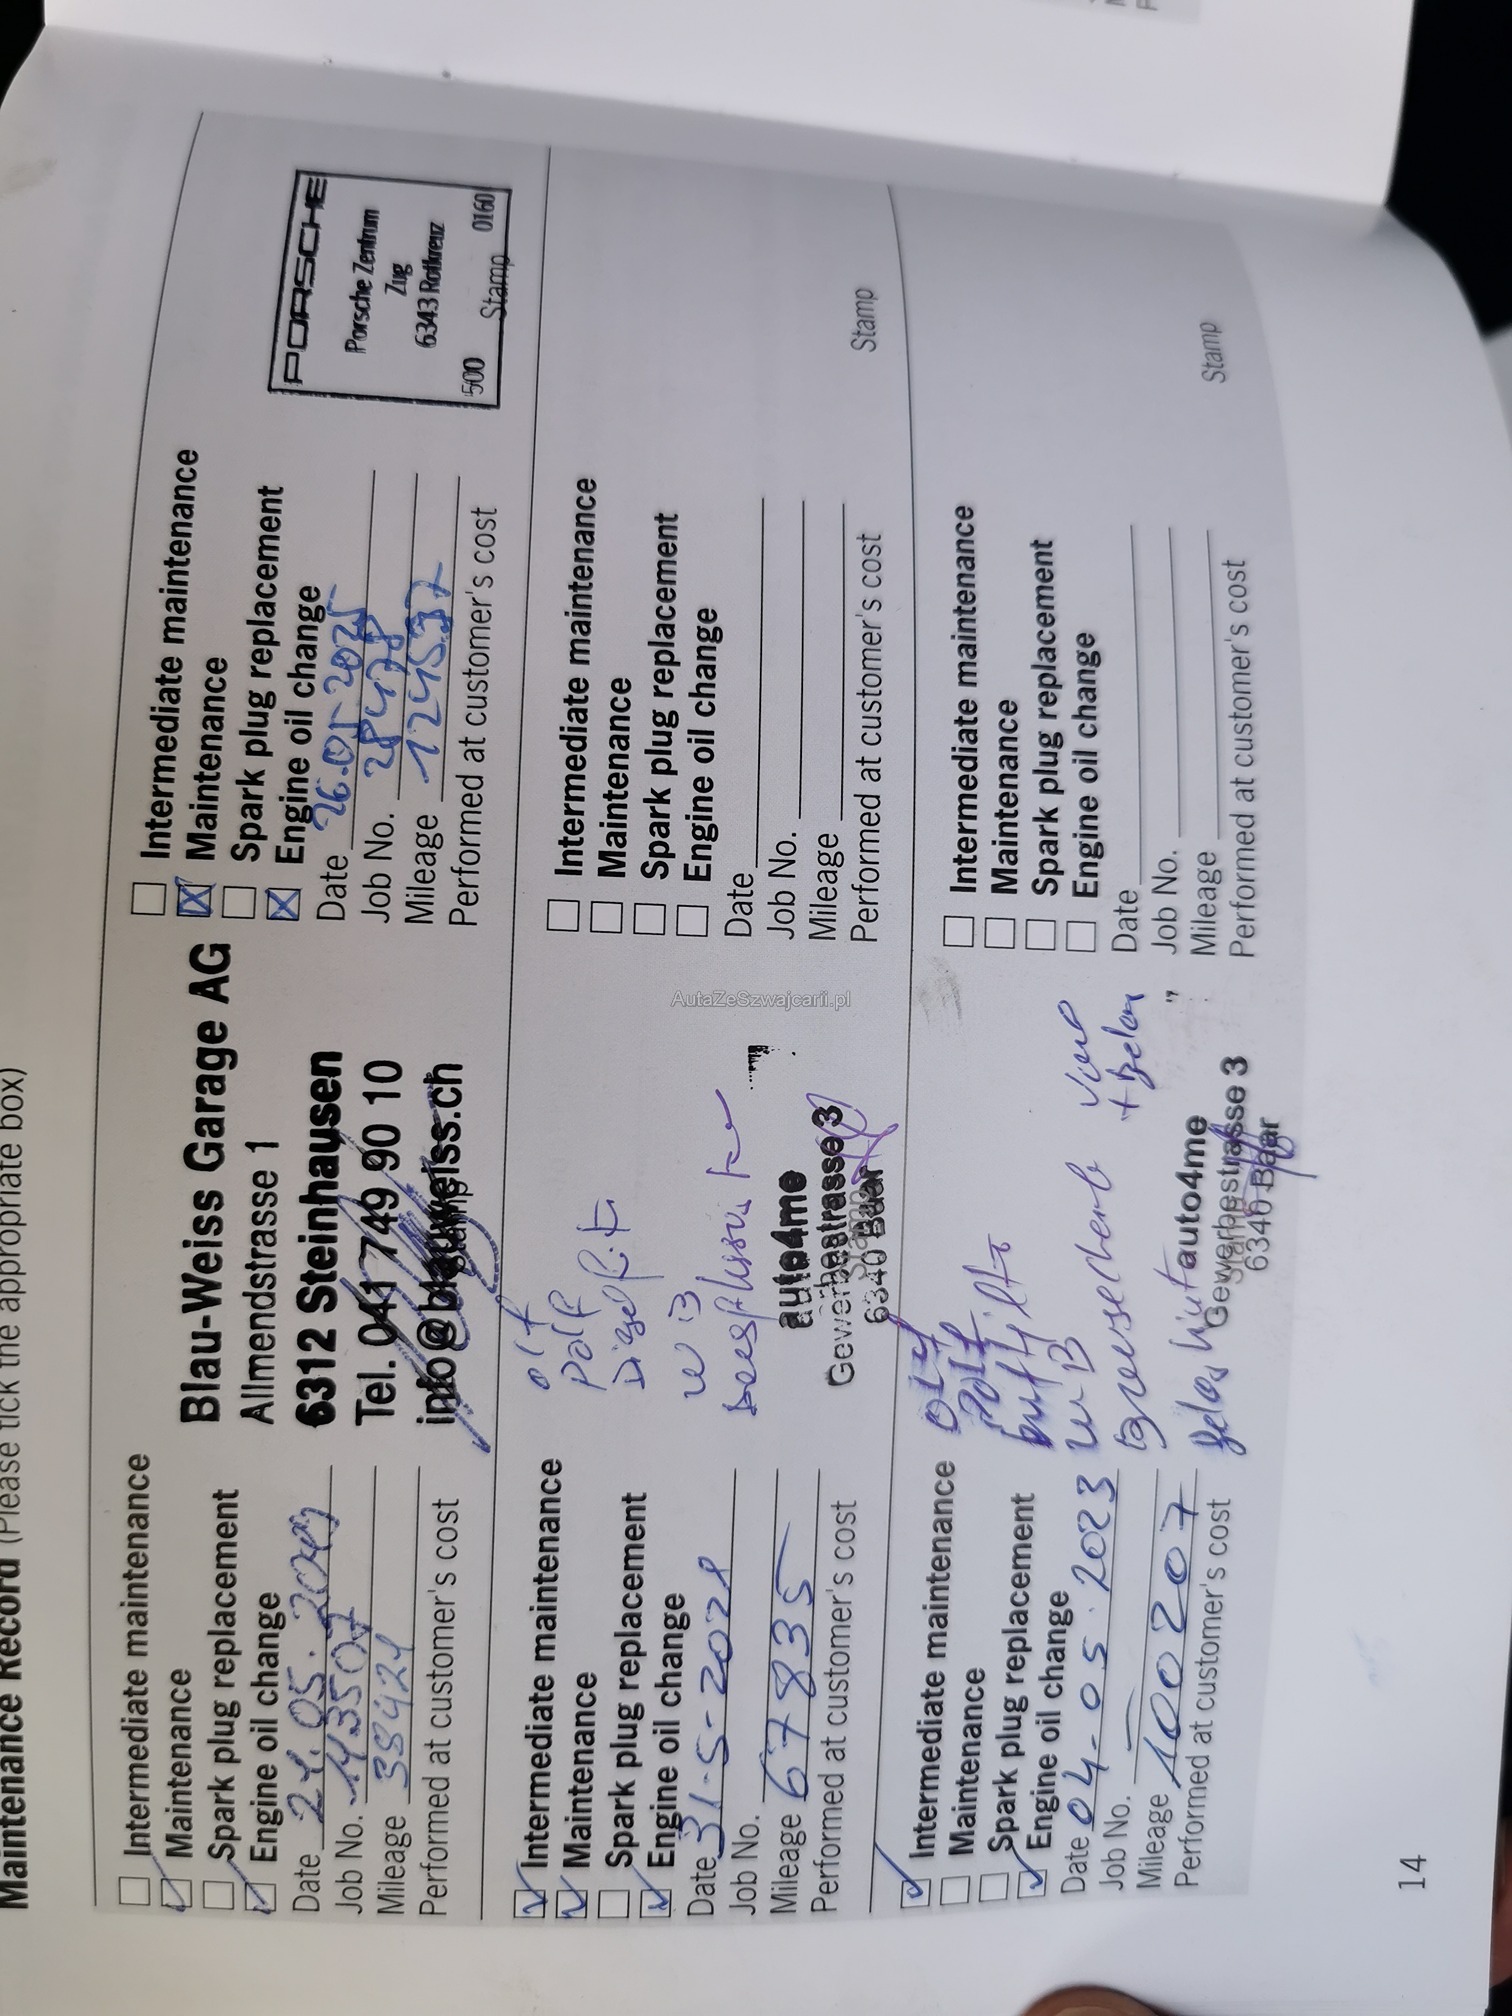 Maintenance Record (Please tick the appropriate box)
Intermediate maintenance
Maintenance
Spark plug replacement
Engine oil change
Date 21.05.
Job No. 143507
Mileage 38421
Performed at customer's cost
Blau-Weiss Garage AG
Allmendstrasse 1
6312 Steinhausen
Tel. 041 749 90 10
info@blauweiss.ch
Stamp
Intermediate maintenance
Maintenance
Spark plug replacement
Engine oil change
Date 26.05.2025
Job No. 28478
Mileage 124597
Performed at customer's cost
PORSCHE
Porsche Zentrum
Zug
6343 Rotkreuz
500 Stamp 0160
Intermediate maintenance
Maintenance
Spark plug replacement
Engine oil change
Date 31-5-2021
Job No.
Mileage 67835
Performed at customer's cost
Polf
WB
auto4me
Gewerbestrasse 3
6340 Baar
Stamp
Intermediate maintenance
Maintenance
Spark plug replacement
Engine oil change
Date
Job No.
Mileage
Performed at customer's cost
Stamp
AutaZeSzwajcarii.pl
Intermediate maintenance
Maintenance
Spark plug replacement
Engine oil change
Date 04-05.2023
Job No. —
Mileage 100207
Performed at customer's cost
Polf
WB
auto4me
Gewerbestrasse 3
6340 Baar
Stamp
Intermediate maintenance
Maintenance
Spark plug replacement
Engine oil change
Date
Job No.
Mileage
Performed at customer's cost
Stamp
14